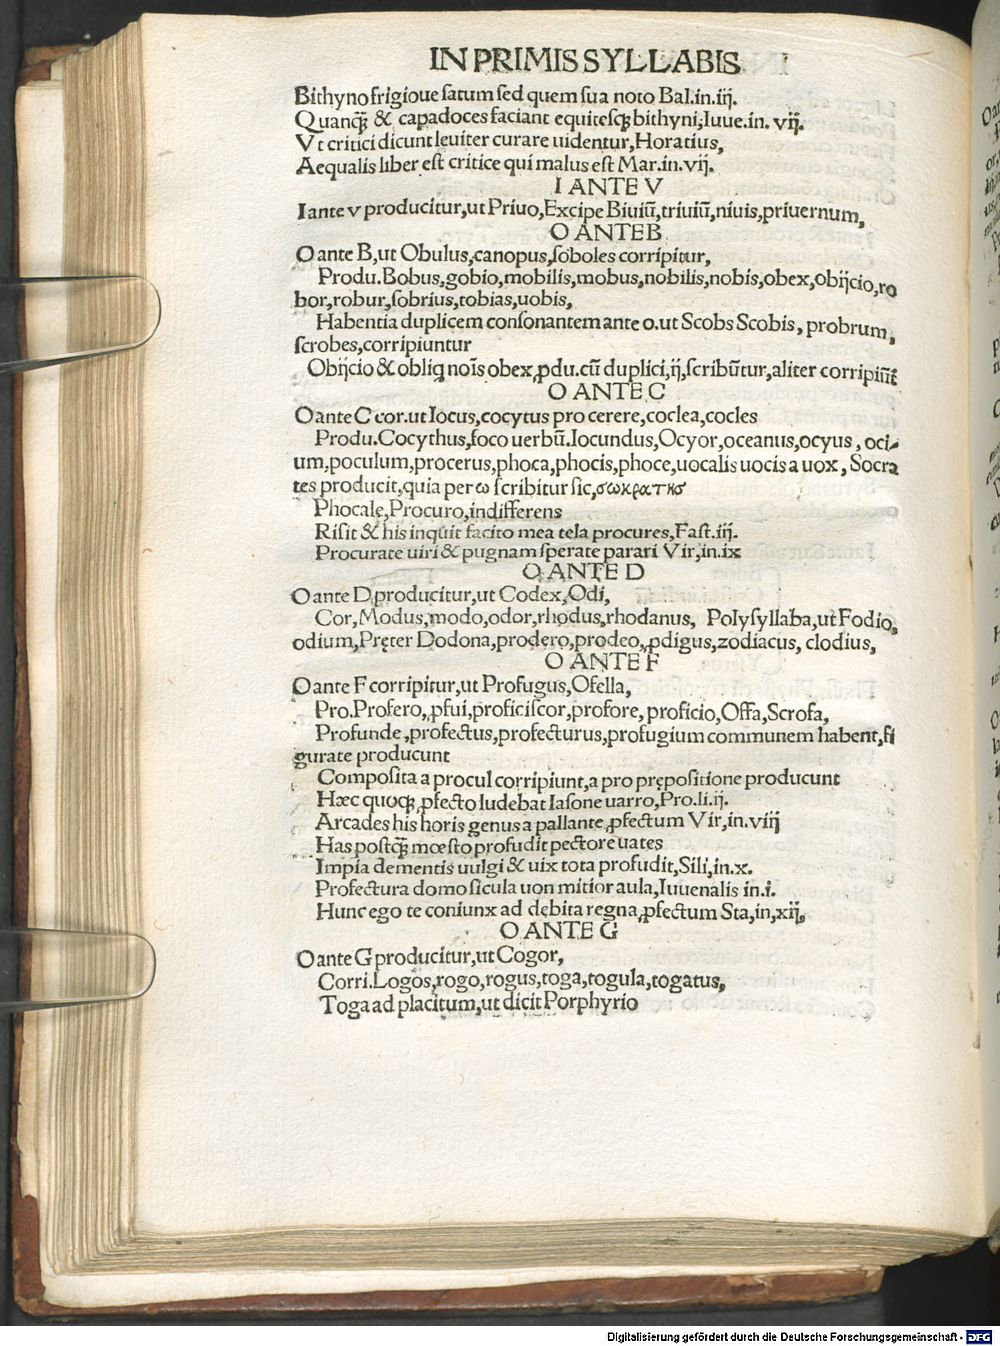 IN PRIMIS SYLLABIS
Bithyno frigioue ſatum ſed quem ſua noto Bal.in.iij.
Quanq̃ & capadoces faciant equiteſq; bithyni,Iuue.in. vij.
Vt critici dicunt leuiter curare uidentur,Horatius,
Aequalis liber eſt critice qui malus eſt Mar.in.vij.
I ANTE V
I ante v producitur,ut Priuo,Excipe Biuiũ,triuiũ,niuis,priuernum,
O ANTE B
O ante B,ut Obulus,canopus,ſoboles corripitur,
Produ.Bobus,gobio,mobilis,mobus,nobilis,nobis,obex,obijcio,ro
bor,robur,ſobrius,tobias,uobis,
Habentia duplicem conſonantem ante o.ut Scobs Scobis, probrum,
ſcrobes,corripiuntur
Obijcio & obliq noĩs obex,ꝓdu.cũ duplici,ij,ſcribũtur,aliter corripiũt
O ANTE C
O ante C cor.ut Iocus,cocytus pro cerere,coclea,cocles
Produ.Cocythus,foco uerbũ.Iocundus,Ocyor,oceanus,ocyus, oci-
um,poculum,procerus,phoca,phocis,phoce,uocalis uocis a uox, Socra
tes producit,quia per ω ſcribitur ſic,σωκρατης
Phocalę,Procuro,indifferens
Riſit & his inquit facito mea tela procures,Faſt.iij.
Procurate uiri & pugnam ſperate parari Vir,in.ix
O ANTE D
O ante D producitur,ut Codex,Odi,
Cor,Modus,modo,odor,rhodus,rhodanus, Polyſyllaba,ut Fodio,
odium,Pręter Dodona,prodero,prodeo,ꝓdigus,zodiacus, clodius,
O ANTE F
O ante F corripitur,ut Profugus,Ofella,
Pro.Profero,ꝓfui,proficiſcor,profore, proficio,Offa,Scrofa,
Profunde,profectus,profecturus,profugium communem habent,fi
gurate producunt
Compoſita a procul corripiunt,a pro prępoſitione producunt
Hæc quoq; ꝓfecto ludebat Iaſone uarro,Pro.li.ij.
Arcades his horis genus a pallante ꝓfectum Vir,in.viij
Has poſtq̃ mœſto profudit pectore uates
Impia dementis uulgi & uix tota profudit,Sili,in.x.
Profectura domo ſicula uon mitior aula,Iuuenalis in.i.
Hunc ego te coniunx ad debita regna ꝓfectum Sta,in,xij,
O ANTE G
O ante G producitur,ut Cogor,
Corri.Logos,rogo,rogus,toga,togula,togatus,
Toga ad placitum,ut dicit Porphyrio
Digitalisierung gefördert durch die Deutsche Forschungsgemeinschaft - DFG